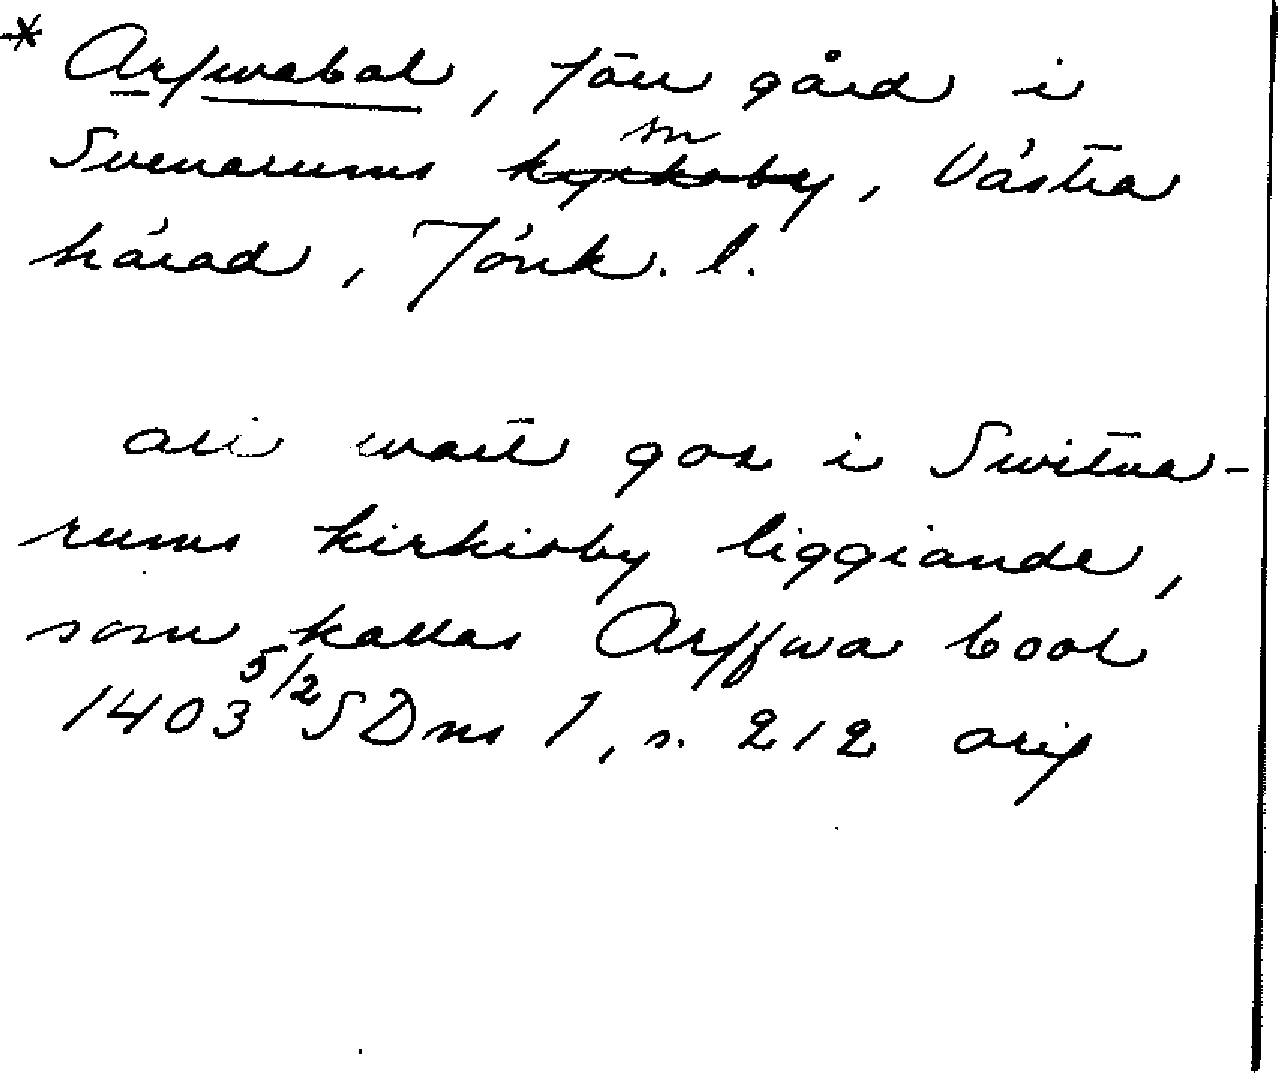 * Arfwabol, förr gård i
Svenarums sn kyrkoby, Västra
härad, Jönk. l.
all wart goz i Switna-
rums kirkioby liggiande,
som kallas Arffwa bool
1403 5/2 SDns 1, s. 212 orig